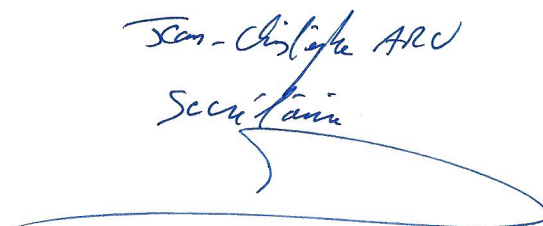 Jean-Christophe ARU
Secrétaire